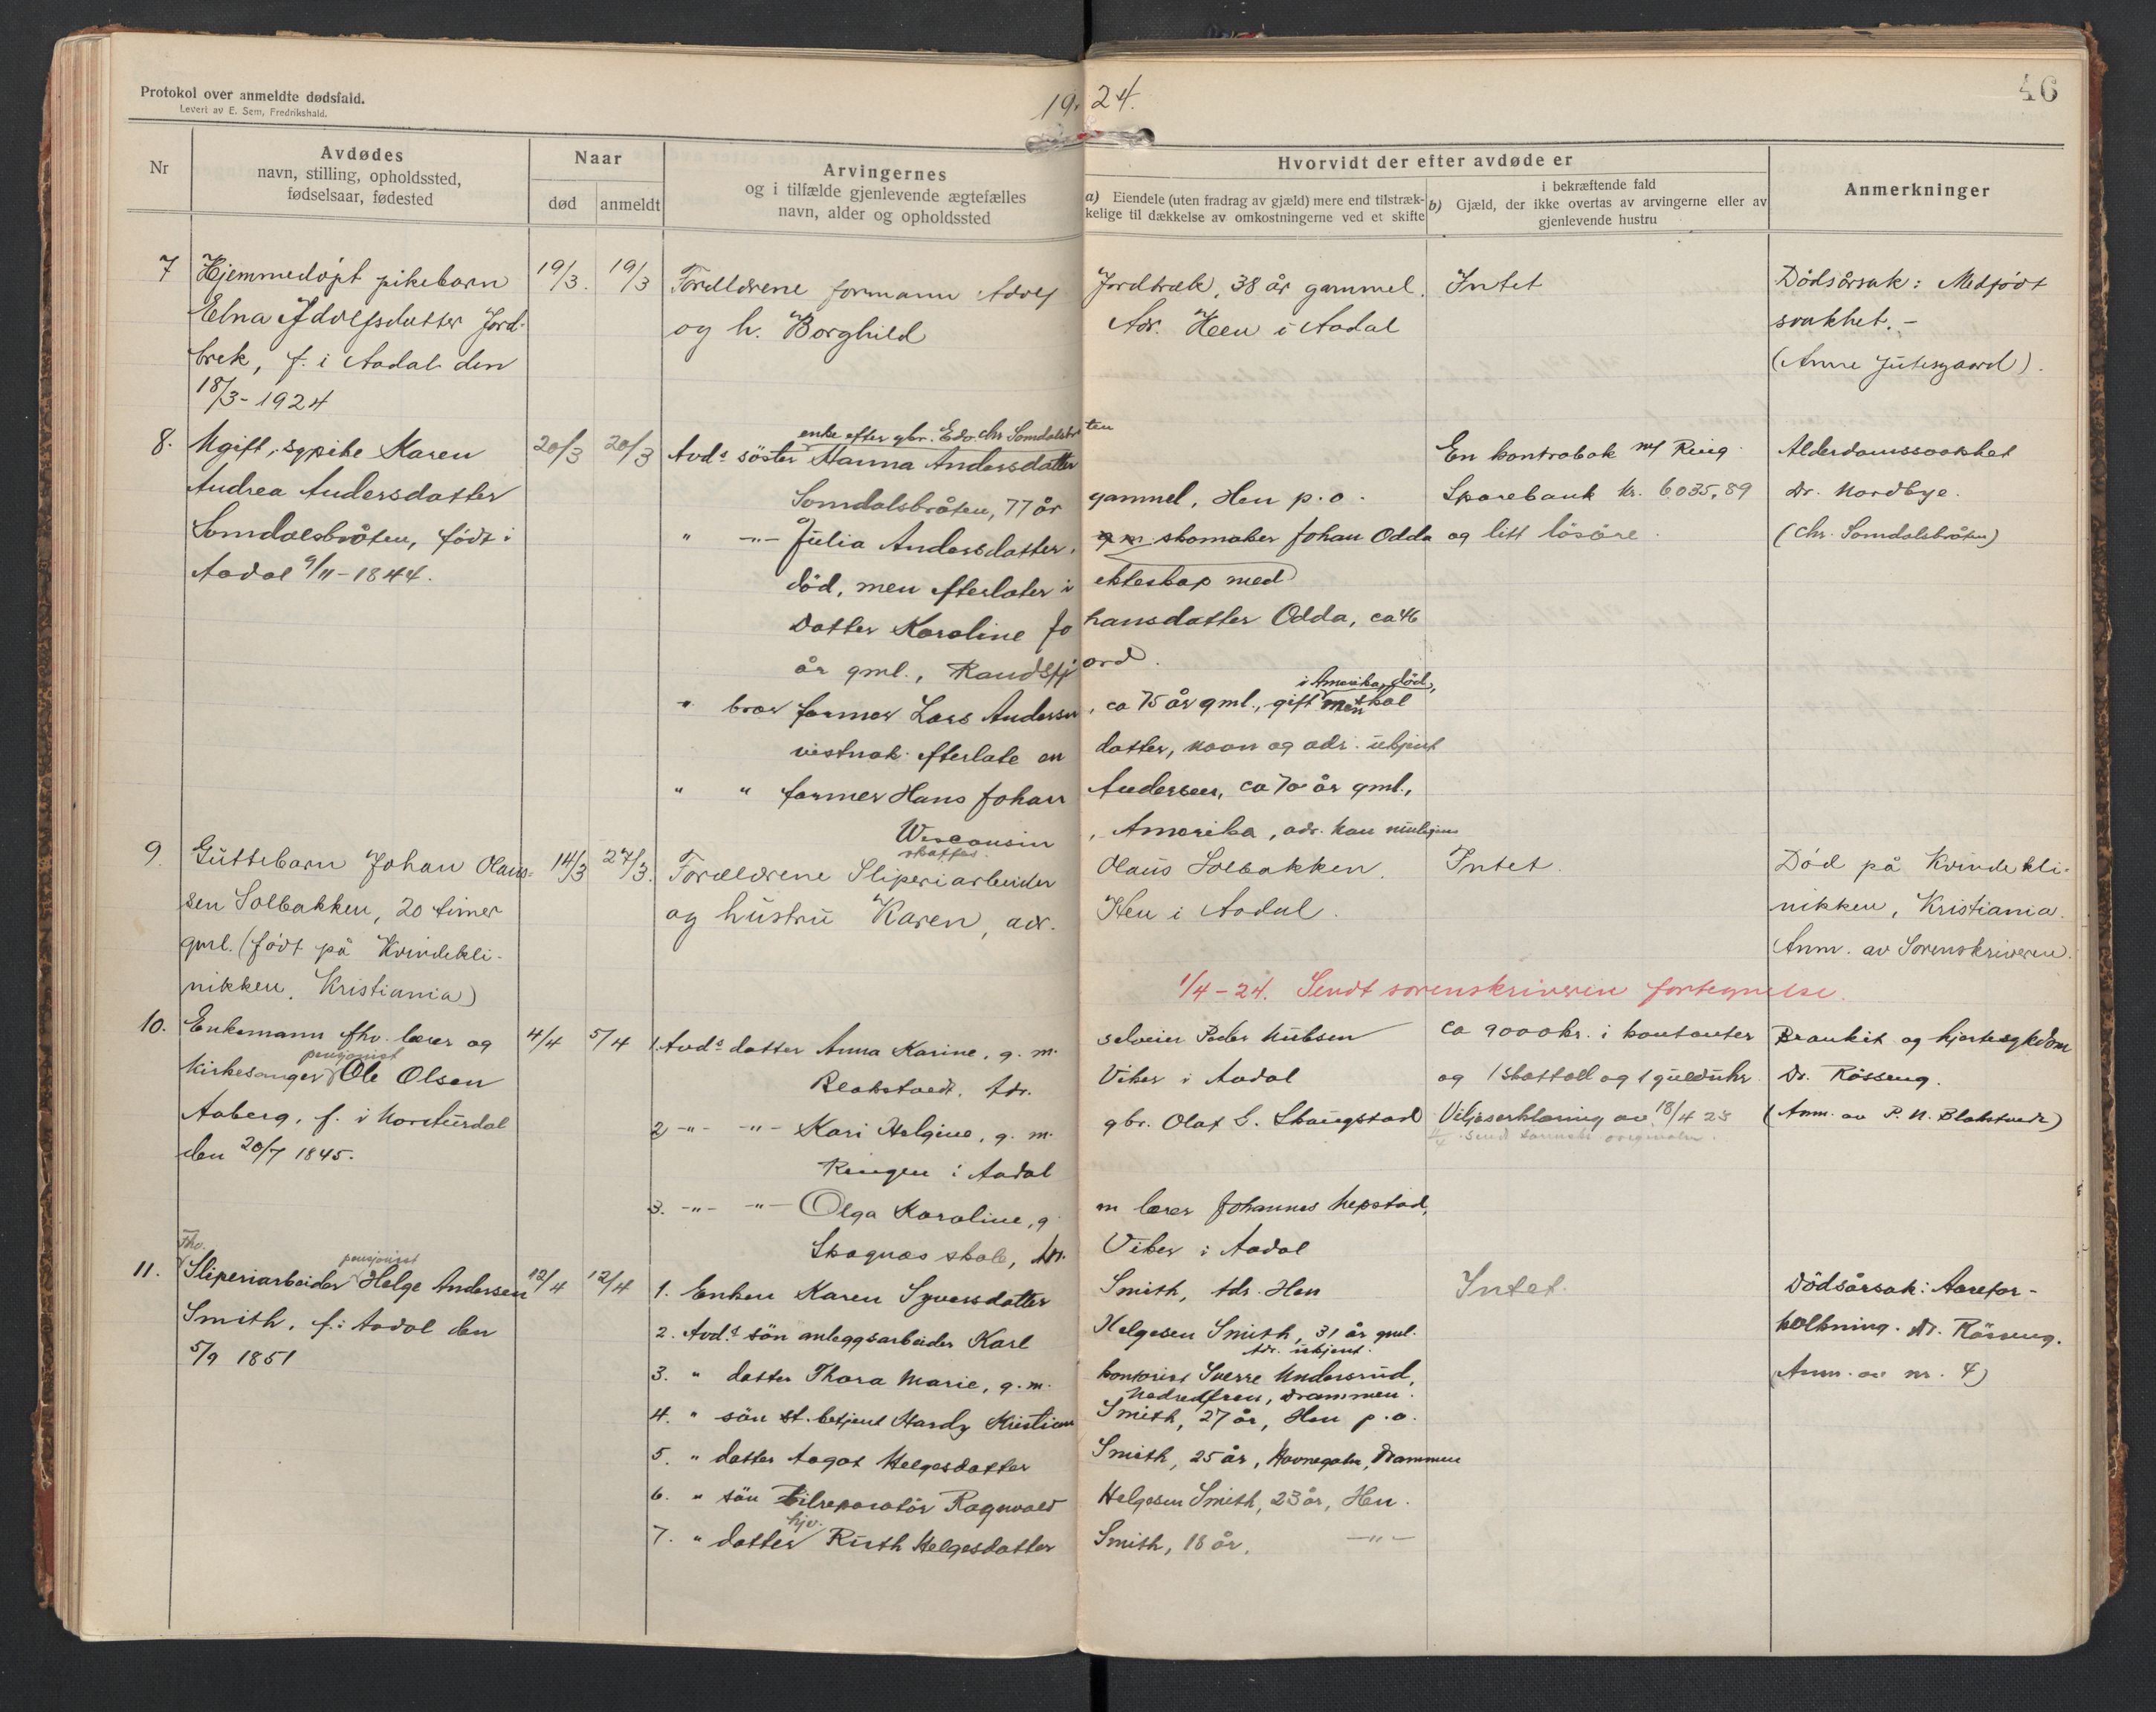 Protokol over anmeldte dødsfald.
Levert av E. Sem, Fredrikshald.
19 24.
46
Nr
Avdødes
navn, stilling, opholdssted,
fødselsaar, fødested
Naar
død
anmeldt
Arvingernes
og i tilfælde gjenlevende ægtefælles
navn, alder og opholdssted
Hvorvidt der efter avdøde er
a) Eiendele (uten fradrag av gjæld) mere end tilstræk-
kelige til dækkelse av omkostningerne ved et skifte
i bekræftende fald
b) Gjæld, der ikke overtas av arvingerne eller av
gjenlevende hustru
Anmerkninger
7 Hjemmedöpt pikebarn 19/3. 19/3 Forældrene formann Adolf Jordbræk, 38 år gammel. Intet Dödsårsak: Medfödt
Elna Adolfsdatter Jord- og h. Borghild Adr. Heen i Aadal svakhet. -
bræk, f. i Aadal den (Anne
18/3-1924
enke efter gbr. Edv. Chr Somdalsbråten
8. Ugift, sypike Karen 20/3 20/3 Avds söster Hanna Andersdatter En kontrabok m/ Ring. Alderdomssvakhet
Andrea Andersdatter Somdalsbråten, 77 år gammel, Hen p.o. Sparebank kr. 6035,89 Dr. Nordbye.
Somdalsbråten, født i " -"- Julia Andersdatter, skomaker Johan Odda og litt lösöre. (Chr. Somdalsbråten)
Aadal 9/11-1844. död, men efterlater i ekteskap med
Datter Karoline Johansdatter Odda, ca 46
år gml., Randsfjord.
i Amerika, död,
" bror farmer Lars Andersen, ca 75 år gml., gift men skal
vistnok efterlate en datter, navn og adr. ukjent
" " farmer Hans Johan Andersen, ca 70 år gml.,
Wisconsin, Amerika, adr. kan muligens
skaffes.
9. Guttebarn Johan Olaus- 14/3 27/3. Forældrene Sliperiarbeider Olaus Solbakken. Intet. Död på Kvindekli-
sen Solbakken, 20 timer og hustru Karen, adr. Hen i Aadal. nikken, Kristiania.
gml. (født på Kvindekli- (Anm. av Sorenskriveren.
nikken, Kristiania)
1/4-24. Sendt sorenskriveren fortegnelse.
10. Enkemann fhv. lærer og 4/4 5/4 1. Avds datter Anna Karine, g. m. selveier Peder Nubsen ca 9000 kr. i kontanter Bronkit og hjertesykdom
pensjonist
kirkesanger Ole Olsen Blakstvedt. Adr. Viker i Aadal og 1 skatoll og 1 gulduhr. Dr. Rösseng.
Aaberg, f. i Norderdal 2 -"- -"- Kari Helgine, g. m. gbr. Olaf G. Skaugstad Viljeserklæring av 18/4 23 (Anm. av P. N. Blakstvedt)
den 20/7 1845. Ringen i Aadal
3. -"- -"- Olga Karoline, g m lærer Johannes Hepstad,
Skagnæs skole, Adr. Viker i Aadal
Fhv. pensjonist
11. Sliperiarbeider Helge Andersen 12/4 12/4 1. Enken Karen Syversdatter Smith, Adr. Hen Intet. Dödsårsak: Aarefor-
Smith, f. i Aadal den 2. Avd.s sön anleggsarbeider Karl Helgesen Smith, 31 år gml. kalkning. Dr. Rösseng.
Adr. ukjent.
5/9 1851 3. " datter Thora Marie, g. m. kontorist Sverre Undersrud, (Anm. av nr. 4)
Drammen.
4. " sön st. betjent Hardy Kristian Smith, 27 år, Hen p.o.
5. " datter Aagot Helgesdatter Smith, 25 år, Havnegaten, Drammen
6. " sön Bilreparatör Ragnvald Helgesen Smith, 23 år, Hen.
hjv.
7. " datter Ruth Helgesdatter Smith, 18 år. -"-